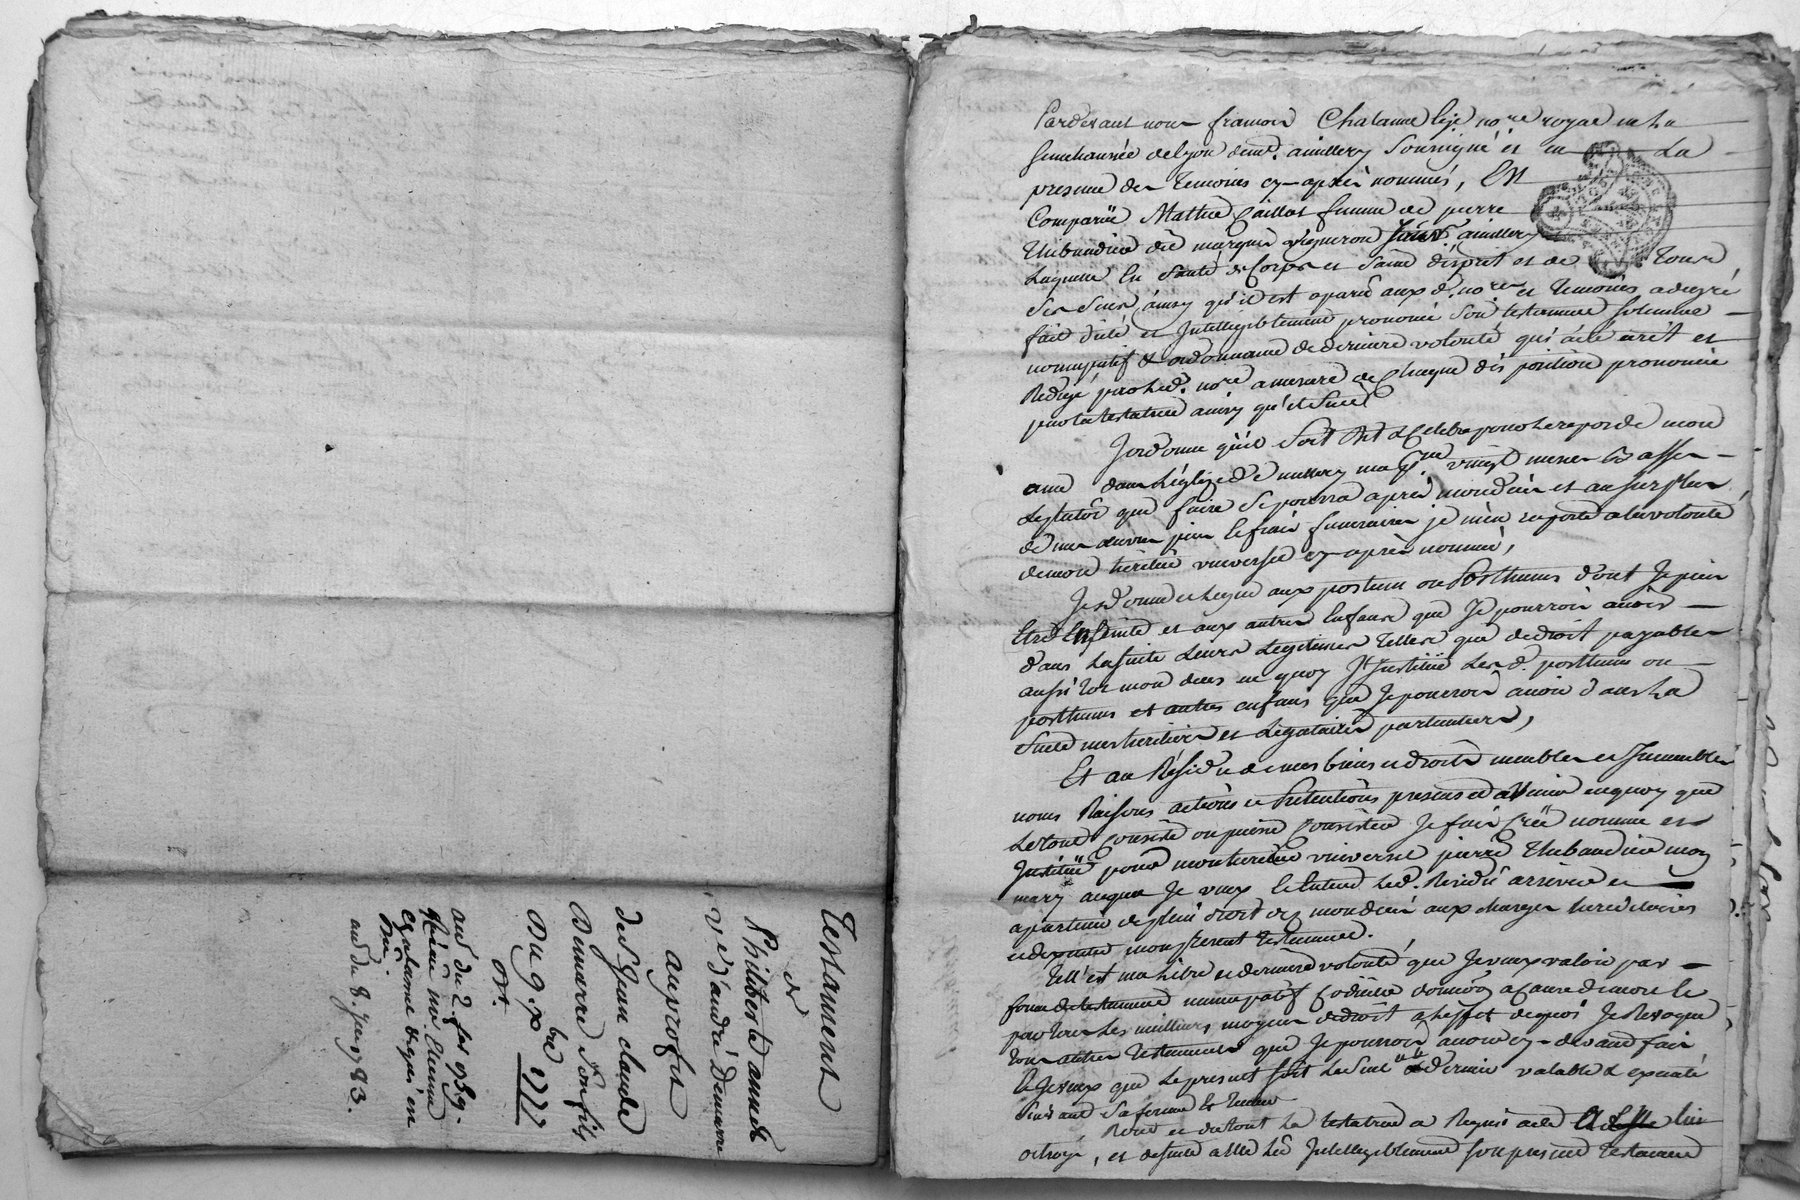 Testament
de
Philiberte annet
Vve d'andré Demurre
auprofit
de Sr Jean claude
Dumurre Son fils
Du 9 xbre 1777
Pardevant nous francois Chalanne lejé nore royal en La
senechaussée de Lyon demt. a millery Soussigné et en La
presence des Temoins cy-après nommés, Est
Comparüe Mathie Caillot femme de pierre
Thibaudier dit marquis vigneron a millery
Laquelle En Santé de Corps et Saine d'ésprit et de Tous
Ses Sens, ainsy qu'il est aparu aux d. nores et Temoins a degré
fait dicté et Jntelligiblement prononcé Son testament Solemnel
noncupatif & ordonnance de derniere volonté qui à été ècrit et
Redigé par Led. nore a mesure de Chaque disposition prononcée
par la testatrice ainsy qu'il Suit
J'ordonne qu'il Soit dit & Celebré pour Le repos de mon
ame dans L'églize de millery ma psse. vingt messes Basses
Le plutôt que faire Se pourra après mon décès et au Surplus
de mes œuvres pies & frais funeraires je m'en raporte a la volonté
de mon héritier universel cy-après nommé,
Je donne et Legue aux postume ou Posthumes d'ont Je puis
Etre Enceinte et aux autres Enfans que Je pourrois avoir
d'ans La Suite Leurs Legitimes Telles que de droit payables
aussi'tôt mon deces en quoy J'Jnstitüe Les d. posthume ou
posthumes et autres enfans que Je pourrois avoir d'ans La
Suite mes heritiers et Légataires particuliers,
Et au Résidu de mes biens et droits meubles et Jmmeubles
noms Raisons actions et Prétentions presens et a Venir en quoy que
Le tout Consiste ou puisse Consister Je fais Créé nomme et
Jnstitüe pour mon heritier universel pierre Thibaudier mon
mary auquel Je veux & Entend Led. Residu arriver et
apartenir de plein droit dez mon décés aux charges hereditaires
et de mon present Testament.
Tell'est ma Libre et derniere volonté que Je veux valoir par
forme de testament nuncupatif Codicille donation a cause de mort &
par tous Les meilleurs moyens de droit a L'effet dequoi Je Revoque
tous autres Testaments que Je pourrois avoir cy-devant fait
& Je veux que Le present Soit Le Seul & dernier valable & executé
Suivant Sa forme & Teneur
Dont et du tout La testatrice a Requis acte a Elle
octroyé, et de Suite a Elle Lû Jntelligiblement Son present Testament